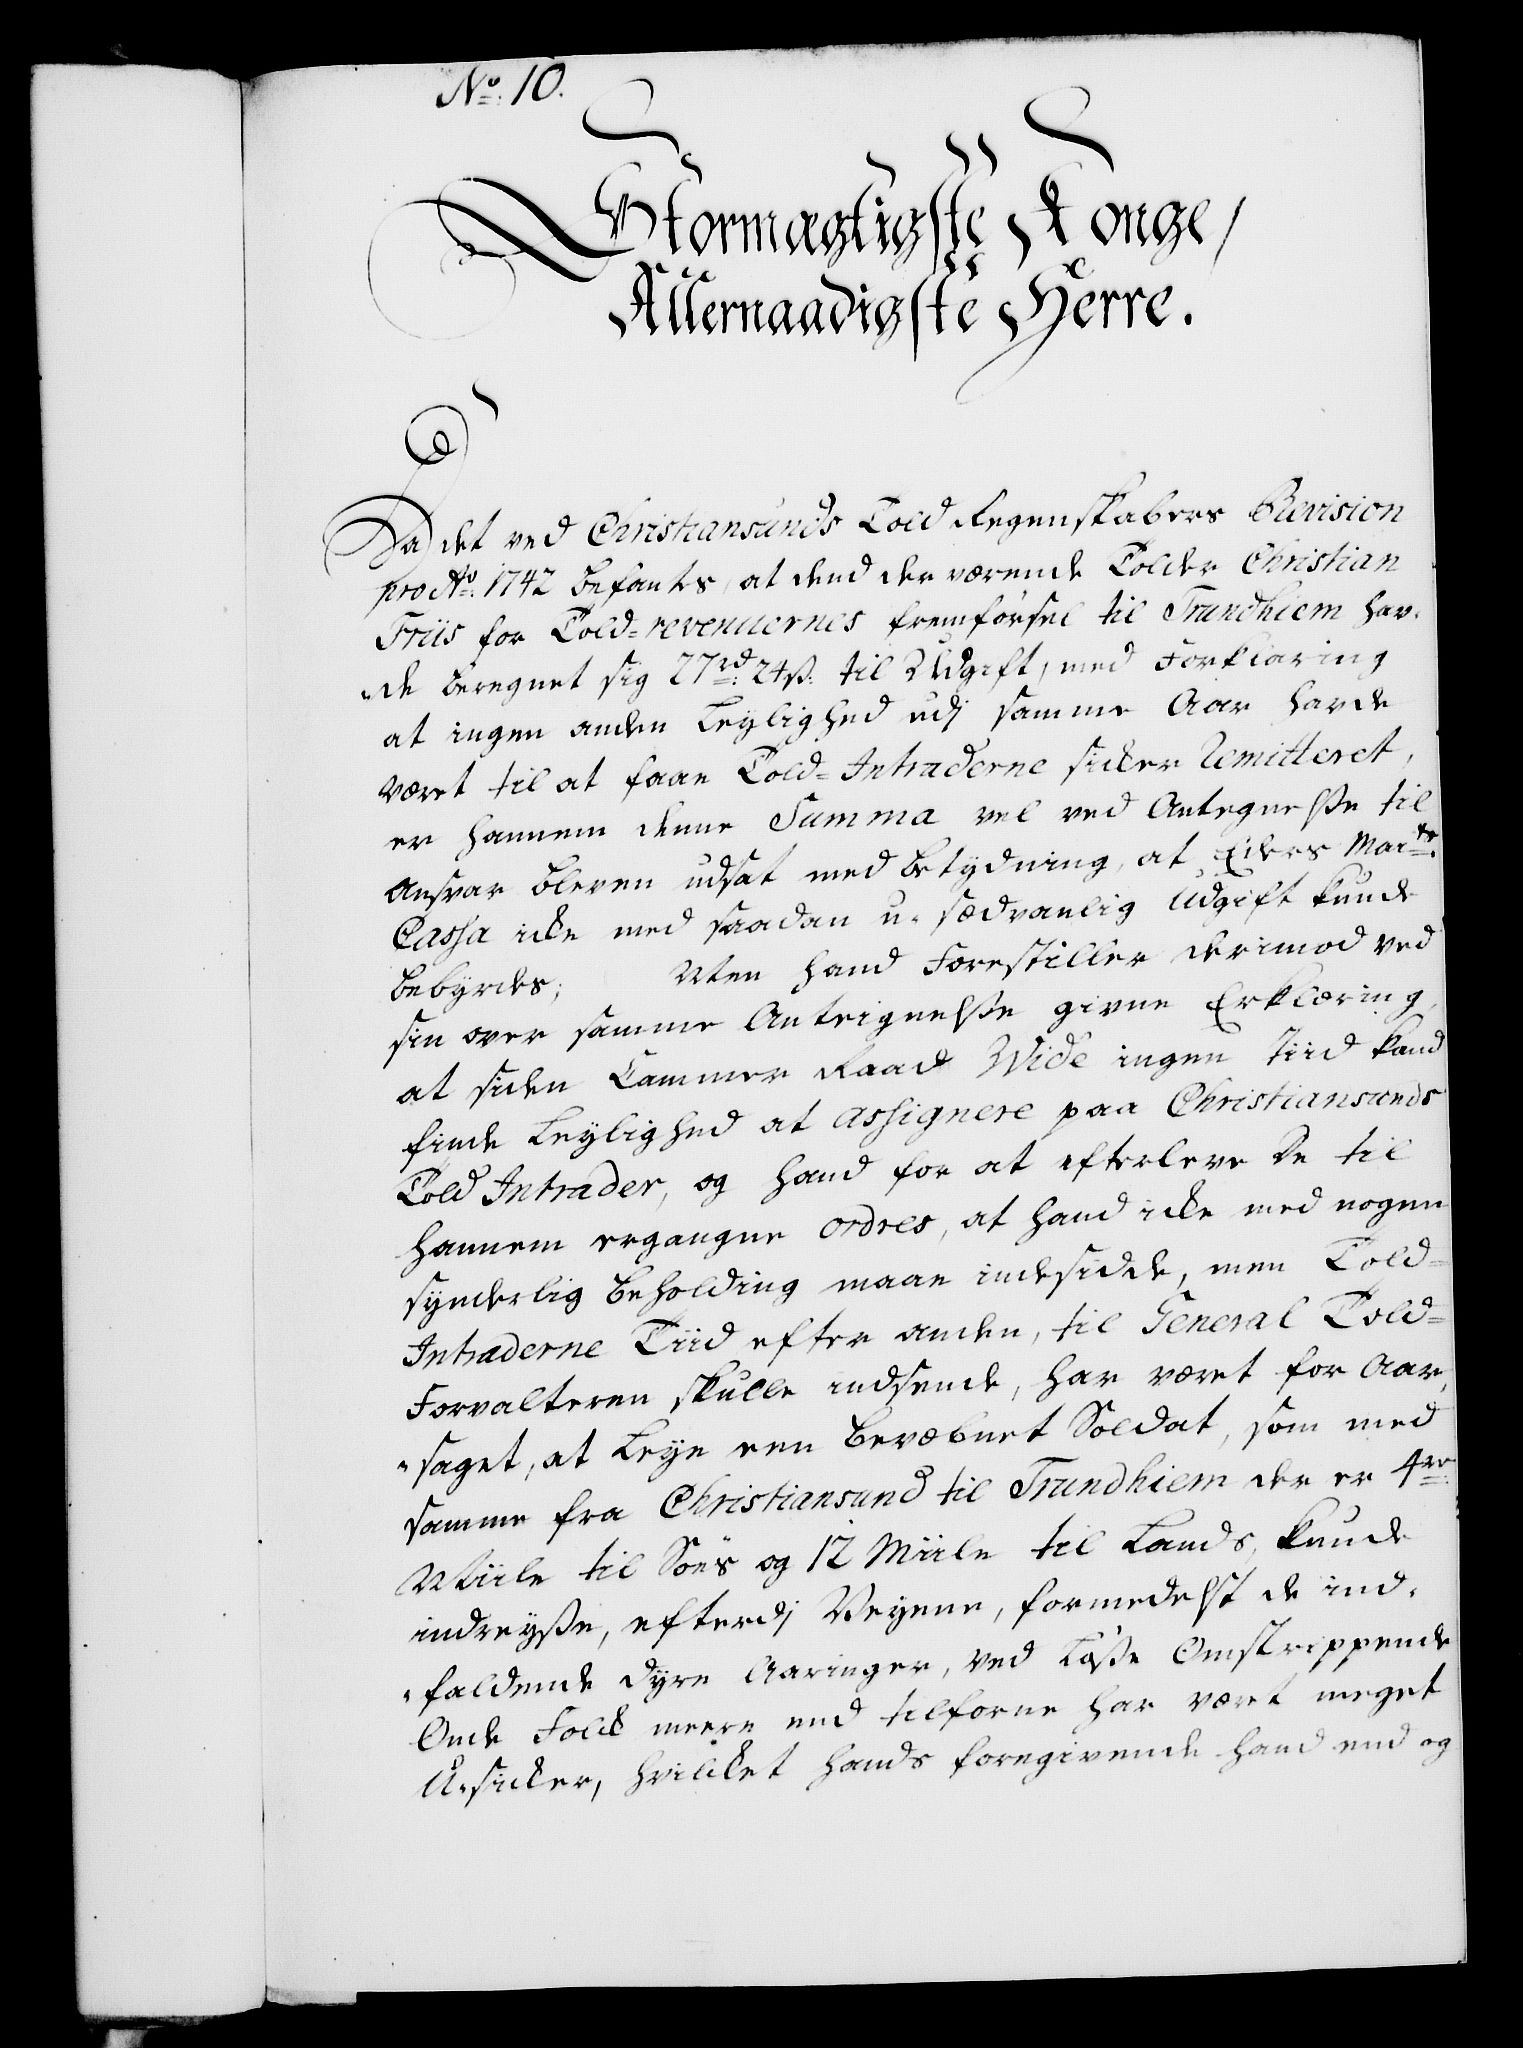 No: 10.
Stormægtigste Konge/
Allernaadigste Herre.
Da det ved Christiansunds Told Regenskabers Revision
pro Ao: 1742 befantes, at dend der værende Tolder Christian
Friis for Told=revenuernes fremförsel til Trundhiem hav-
"de beregnet sig 27rd: 24ß. til Udgift, med Forklaring
at ingen anden Leylighed udj samme Aar havde
været til at faae Told=Intraderne sicker Remitteret,
er hannem denne Summa vel ved Antegnelse til
Ansvar bleven udsat med betydning, at Eders Maits:
Cassa icke med saadan u-sædvanlig Udgift kunde
bebyrdes; Men hand Forestiller derimod ved
sin over samme Anteignelse givne Erklæring,
at siden Cammer Raad Wide ingen Tiid kand
finde Leylighed at assignere paa Christiansunds
Told Intrader, og hand for at efterleve De til
hannem ergangne ordres, at hand icke med nogen
synderlig beholding maae indesidde, men Told=
Intraderne Tiid efter anden, til General Told=
Forvalteren skulle indsende, har været for Aar,
"saget, at Leye een bevæbnet Soldat, som med
samme fra Christiansund til Trundhiem der er 4re
Miile til Söes og 12 Miile til Lands, kunde
indreyse, efterdj Veyene, formedelst de ind-
"faldende dyre Aaringer, ved Löse Omstrippende
Onde Folck meere end tilforne har været meget
U-sicker, hvilcket hands foregivende hand end og